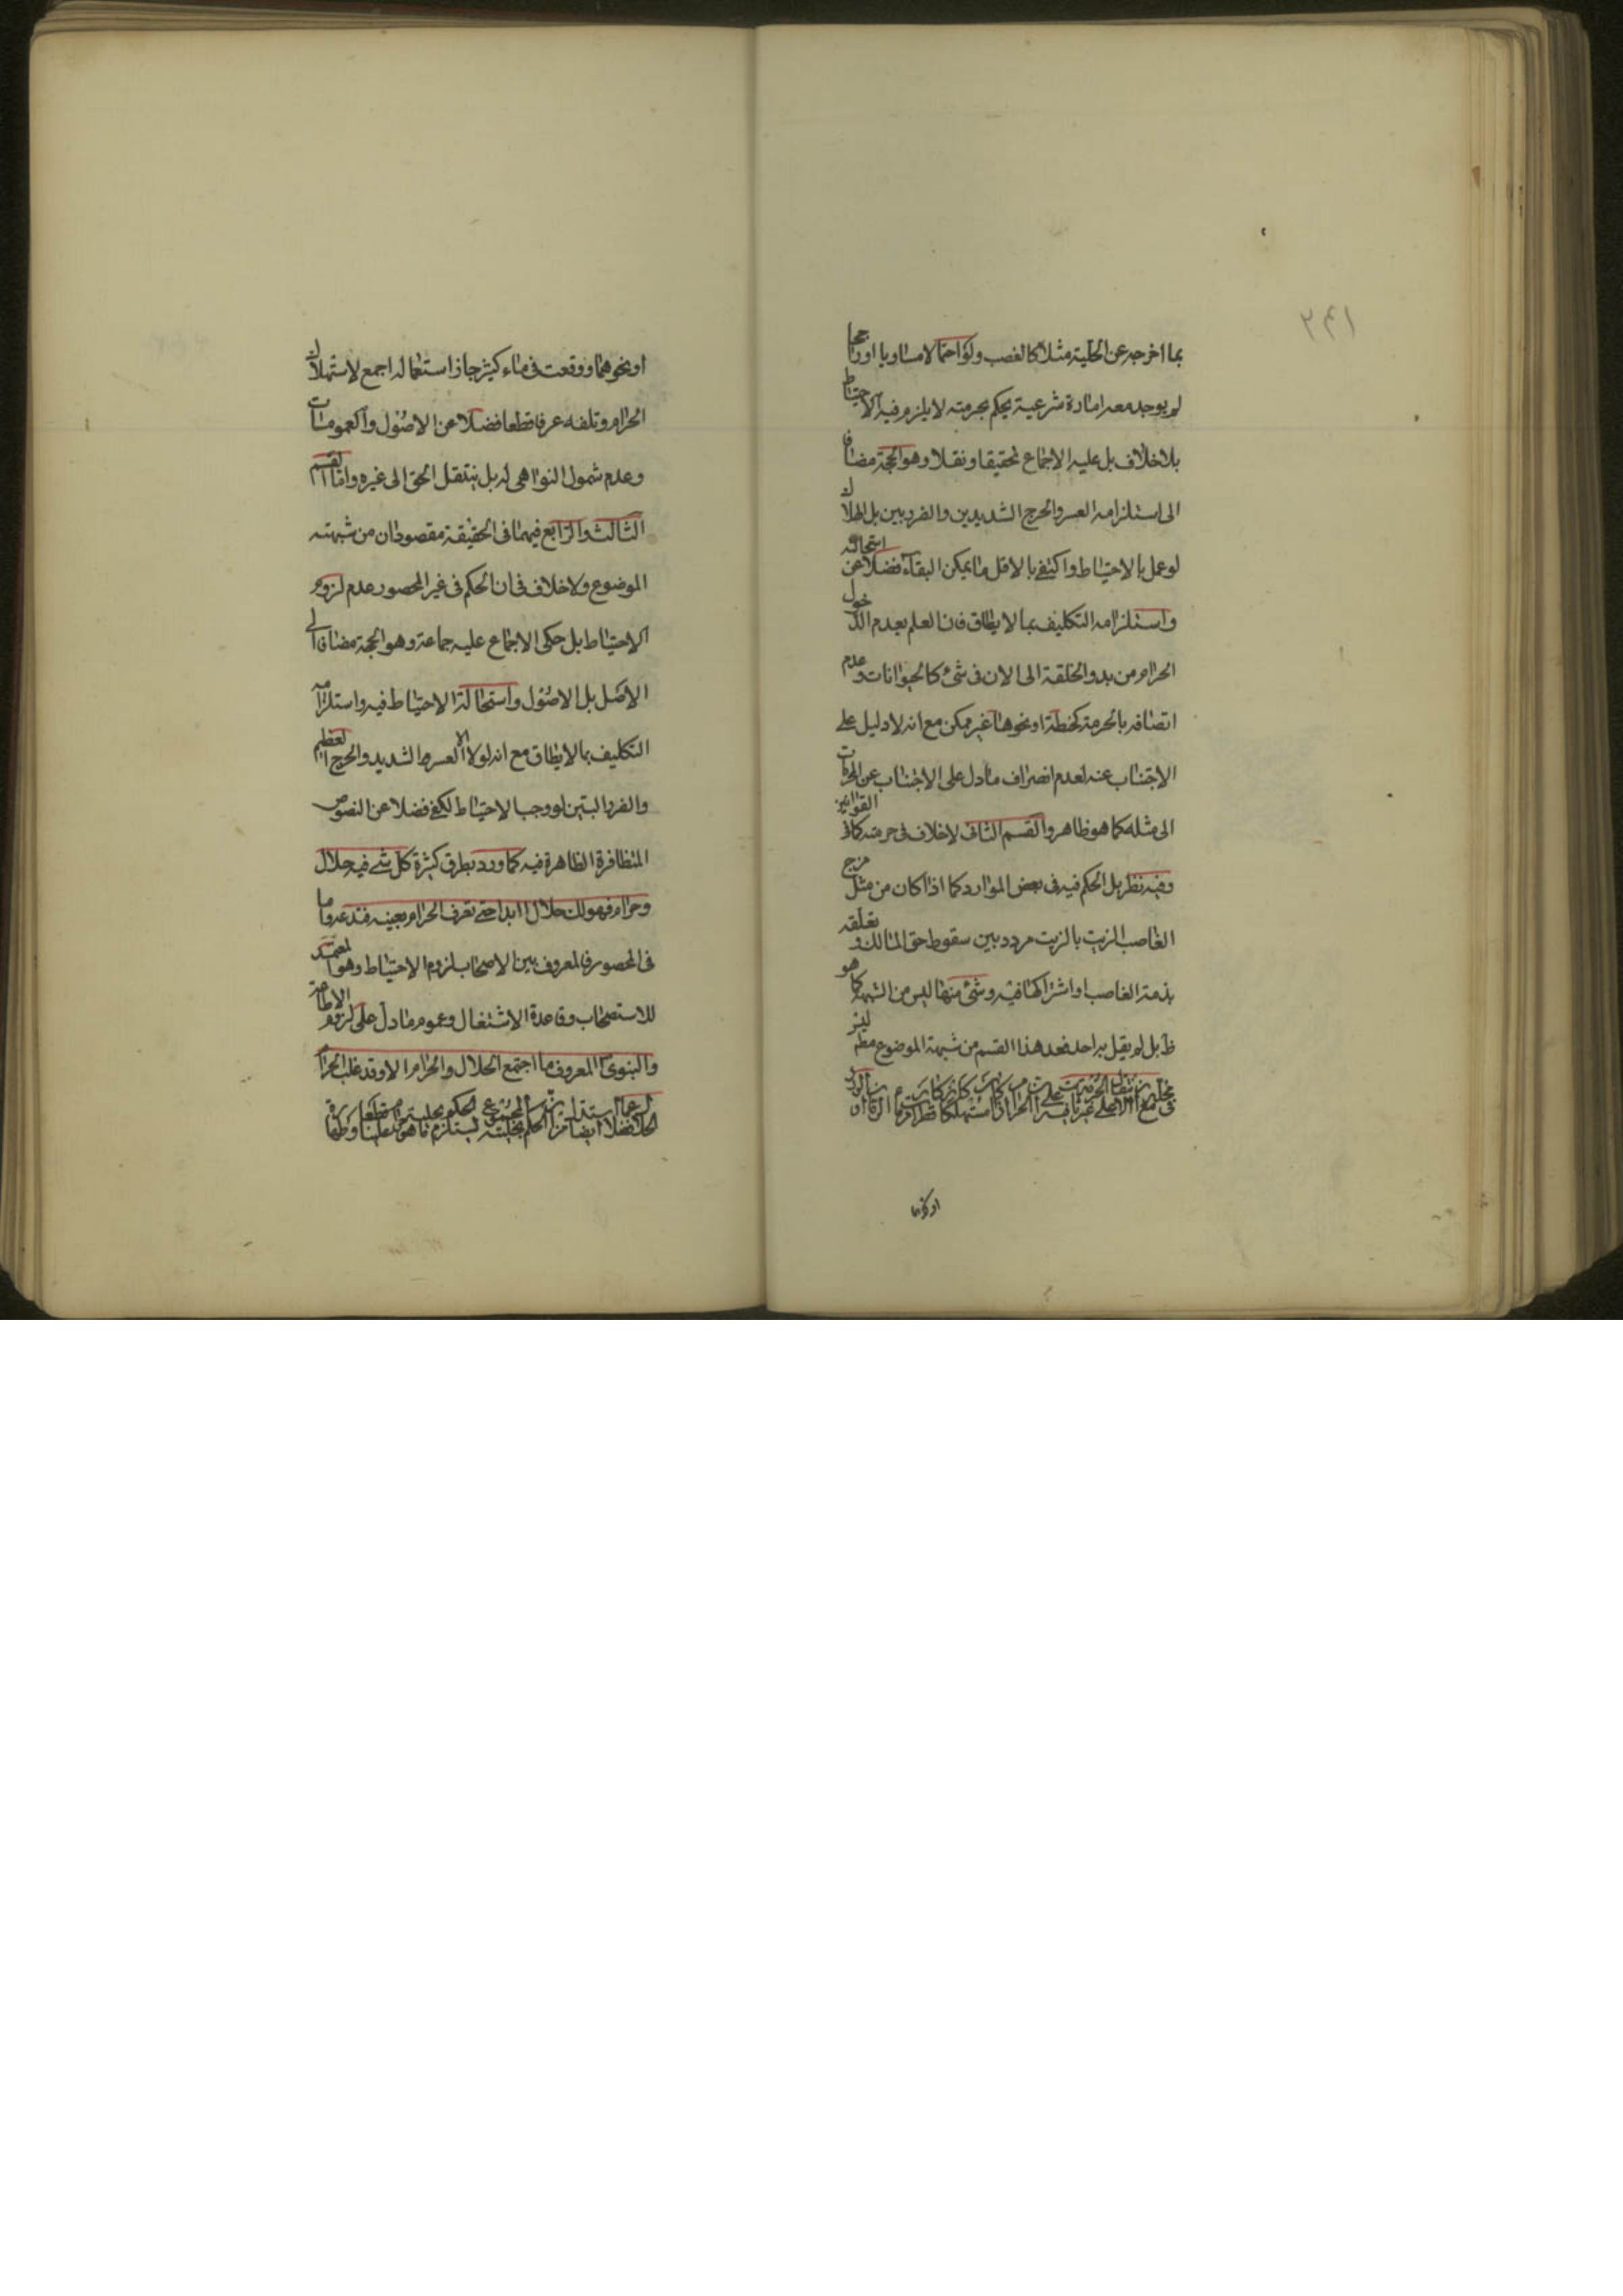 بما اخرجه عن الحلية مثلا كالغصب ولو احتمالا مساويا او راجحا
لم يوجد معه امارة شرعية يحكم بحرمته لا يلزم فيه الاحتياط
بلا خلاف بل عليه الاجماع تحقيقا ونقلا وهو الحجة مضافا
الى استلزامه العسر والحرج الشديدين والضرر بين بل الهلاك
لو عمل بالاحتياط واكتفى بالاقل ما يمكن البقاء فضلا عن استحالته
واستلزامه التكليف بما لا يطاق فان العلم بعدم الدخول
الحرام من بدو الخلقة الى الان في شئ كالحيوانات وعدم
اتصافه بالحرمة كحنطة او نحوها غير ممكن مع انه لا دليل على
الاجتناب عنه لعدم انصراف ما دل على الاجتناب عن المحرمات
الى مثله كما هو ظاهر والقسم الثاني لا خلاف في حرمته كما في القوانين
وفيه نظر بل الحكم فيه في بعض الموارد كما اذا كان من مثل مزج
الغاصب الزيت بالزيت مردد بين سقوط حق المالك وتعلقه
بذمة الغاصب او اشتراكهما فيه وشئ منها ليس من الشبهة كما هو
ظ بل لم يقل به احد فعد هذا القسم من شبهة الموضوع مطم ليس
او نحوهما
او نحوهما ووقعت في ماء كثير جاز استعماله اجمع لاستهلاك
الحرام وتلفه عرفا قطعا فضلا عن الاصول والعمومات
وعدم شمول النواهي له بل ينتقل الحق الى غيره واما القسم
الثالث والرابع فهما في الحقيقة مقصودان من شبهة
الموضوع ولا خلاف في ان الحكم في غير المحصور عدم لزوم
الاحتياط بل حكى الاجماع عليه جماعة وهو الحجة مضافا الى
الاصل بل الاصول واستحالة الاحتياط فيه واستلزامه
التكليف بما لا يطاق مع انه لولا الا العسر الشديد والحرج العظيم
والضرر البين لو وجب الاحتياط لكفى فضلا عن النصوص
المتظافرة الظاهرة فيه كما ورد بطرق كثيرة كل شئ فيه حلال
وحرام فهو لك حلال ابدا حتى تعرف الحرام بعينه فتدعه واما
في المحصور فالمعروف بين الاصحاب لزوم الاحتياط وهو المعتمد
للاستصحاب وقاعدة الاشتغال وعموم ما دل على لزوم الاطاعة
والنبوي المعروف ما اجتمع الحلال والحرام الا وقد غلب الحرام